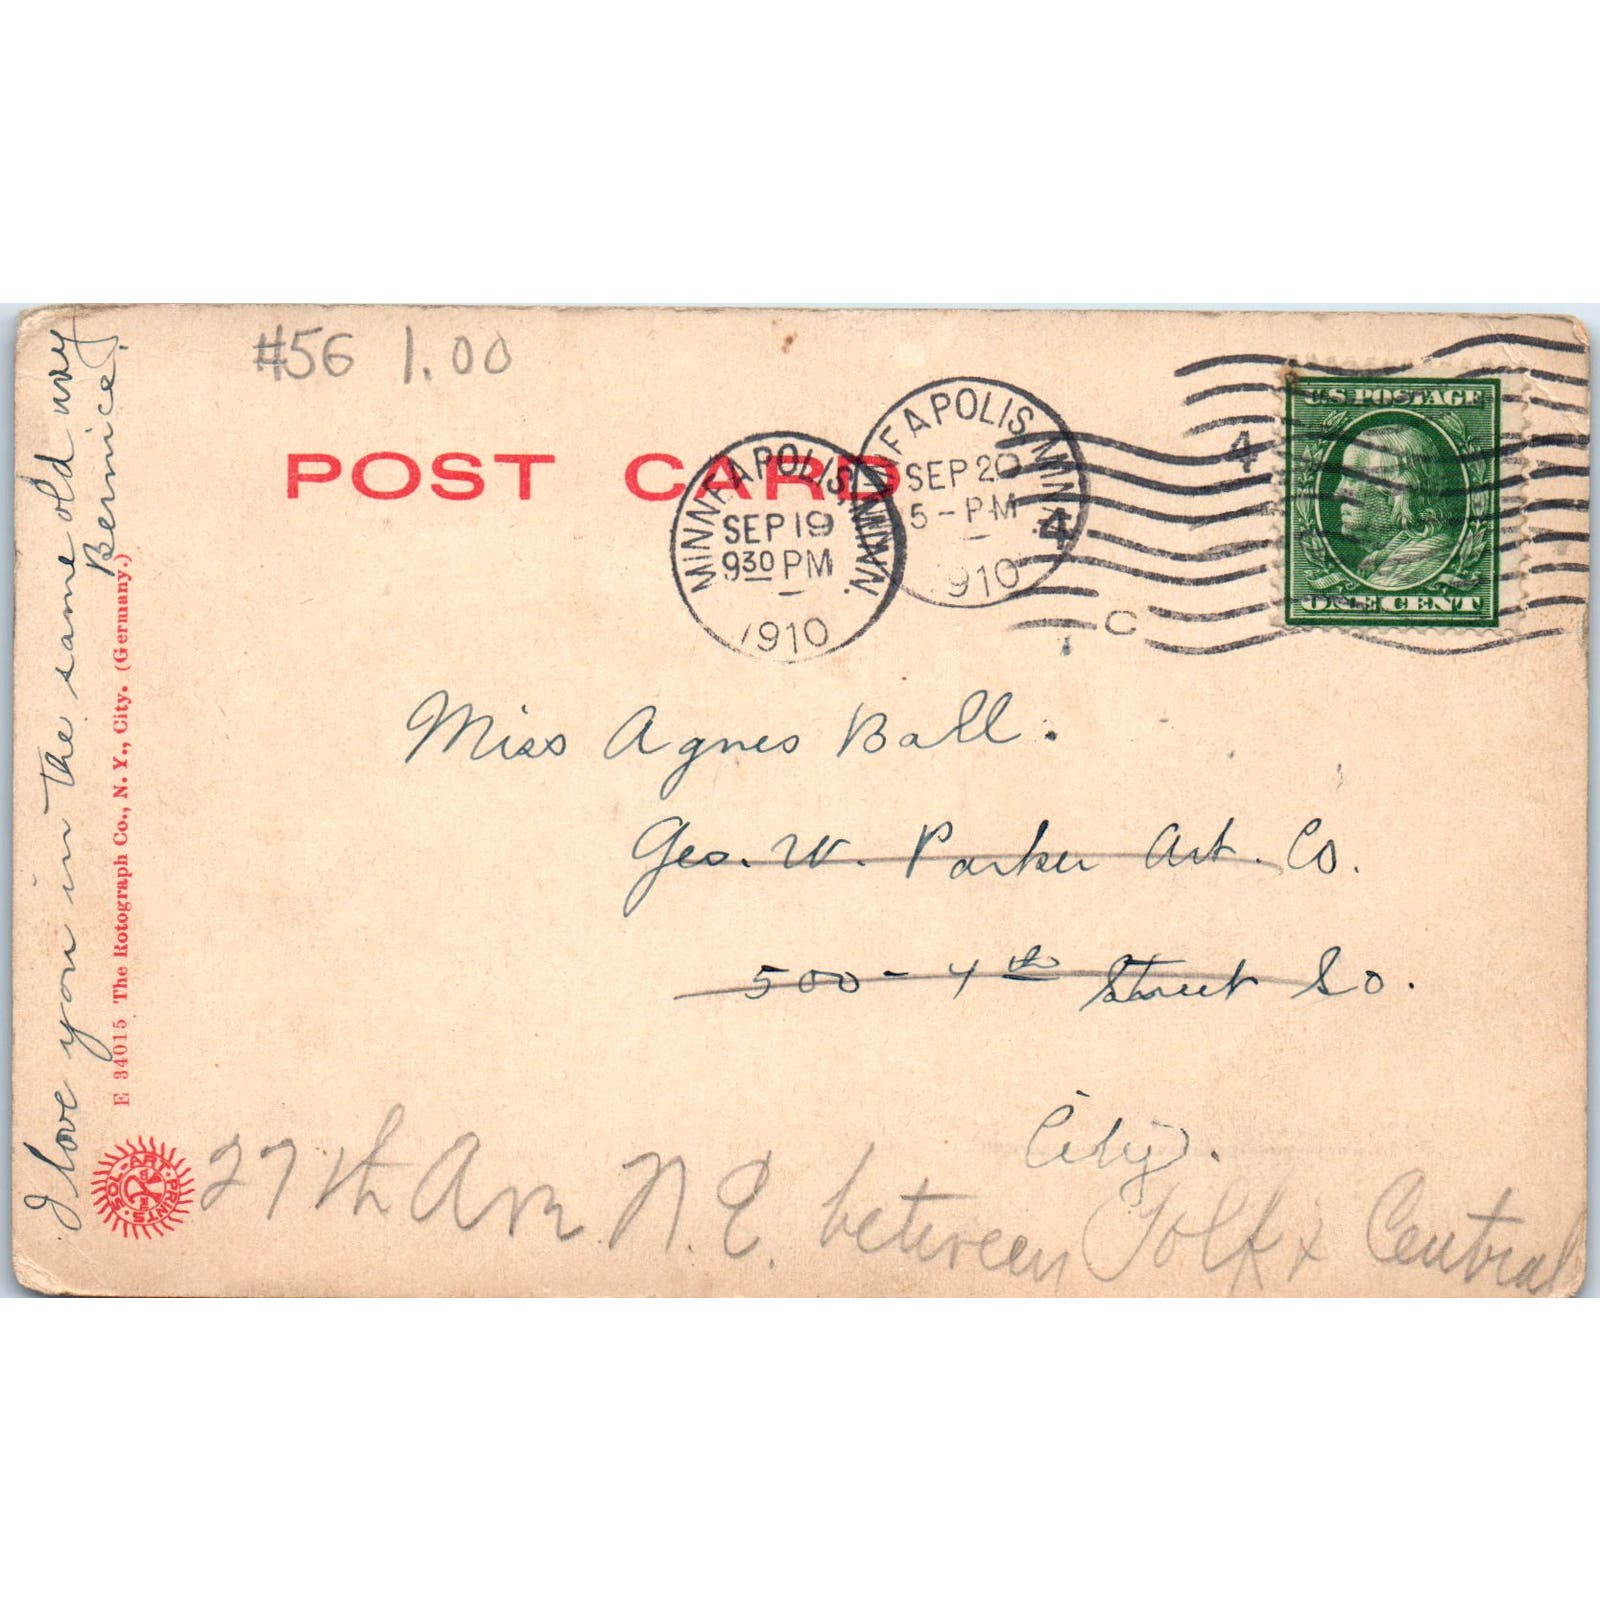 #56 1.00
POST CARD
MINNEAPOLIS, MINN.
SEP 19
9 30 PM
1910
MINNEAPOLIS, MINN.
SEP 20
5 - PM
1910
4
4
C
U.S. POSTAGE
ONE CENT
Miss Agnes Ball.
Geo. W. Parker Art. Co.
500 - 4th Street So.
City.
27th Ave N.E. between Polk & Central
I love you in the same old way
Bernice.
E 34015 The Rotograph Co., N. Y., City. (Germany.)
SOL-ART PRINTS